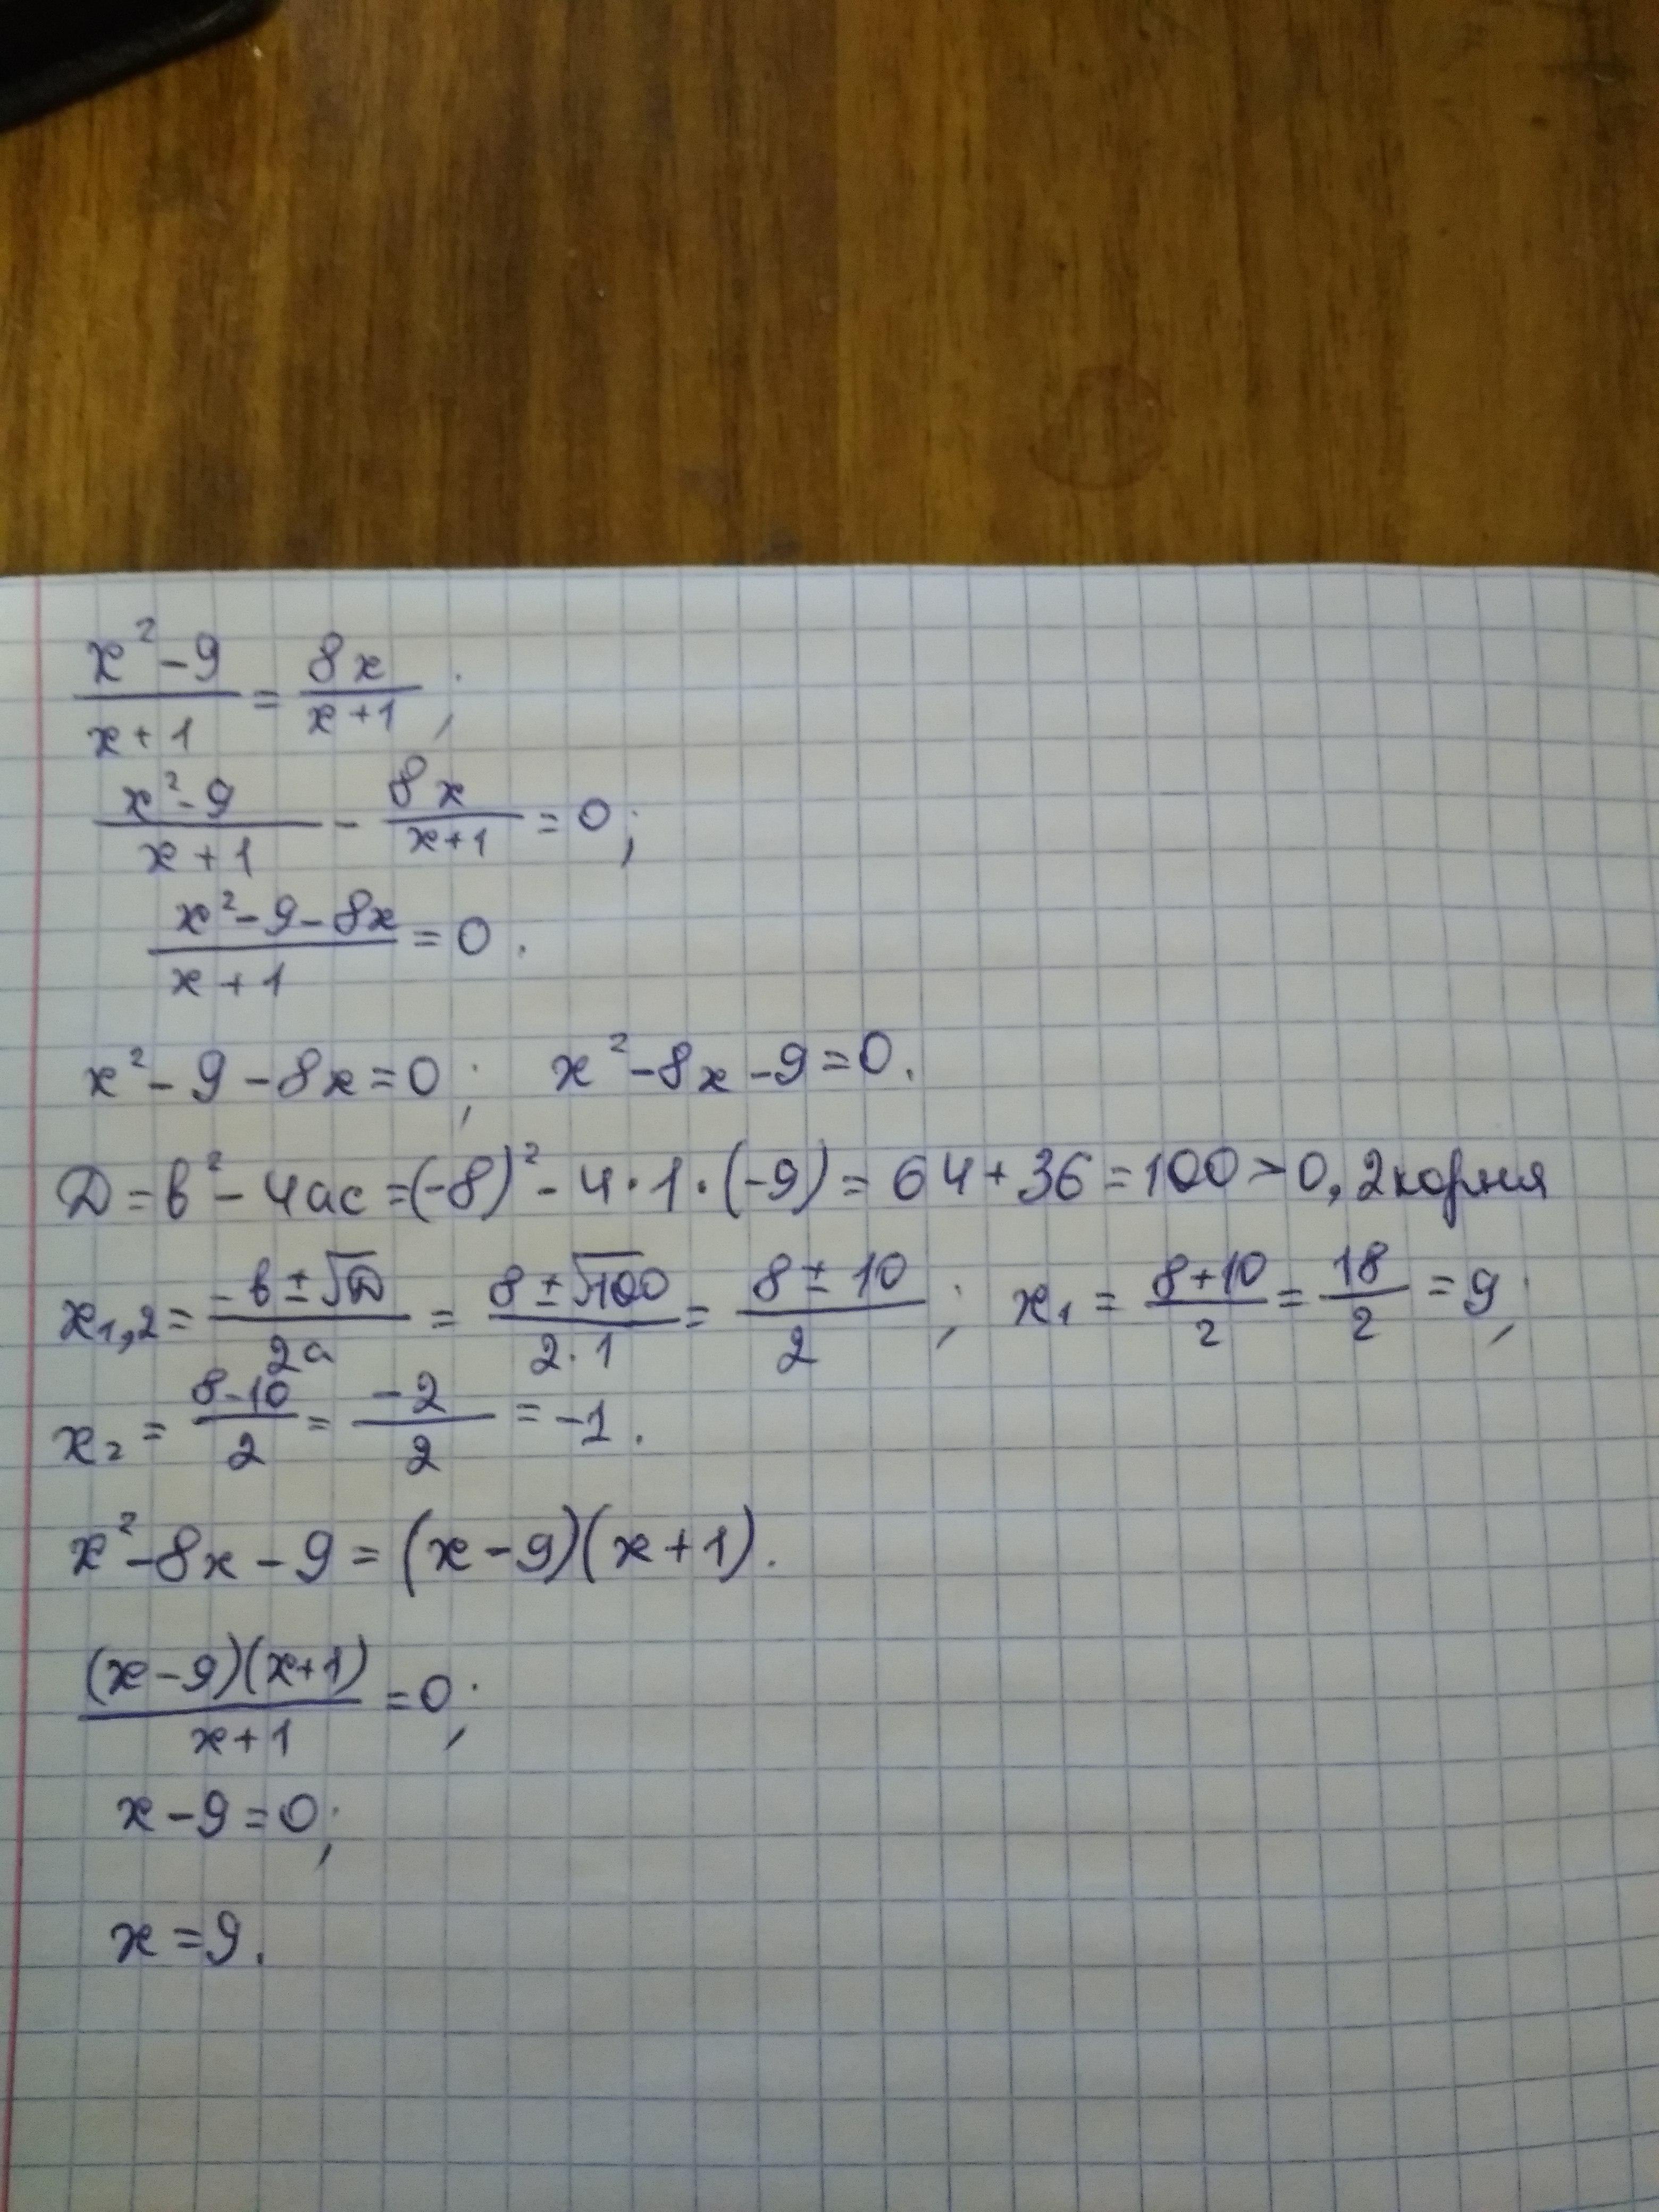 x²-9/x+1 = 8x/x+1;
x²-9/x+1 - 8x/x+1 = 0;
x²-9-8x/x+1 = 0.
x²-9-8x=0; x²-8x-9=0.
Д=b²-4ac=(-8)²-4·1·(-9)=64+36=100>0, 2 корня
x1,2 = -b±√Д/2a = 8±√100/2·1 = 8±10/2; x1 = 8+10/2 = 18/2 = 9;
x2 = 8-10/2 = -2/2 = -1.
x²-8x-9=(x-9)(x+1).
(x-9)(x+1)/x+1 =0;
x-9=0;
x=9.